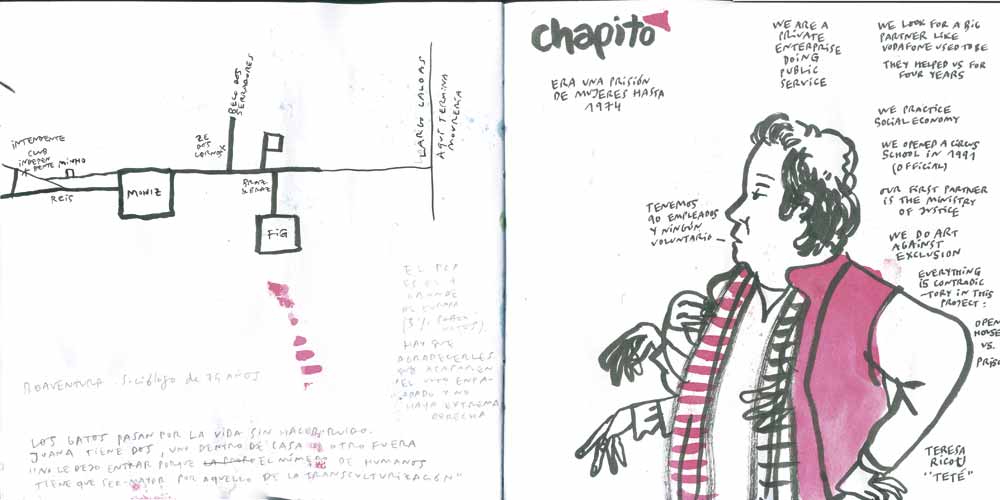 INTENDENTE
CLUB
INDEPEN
DENTE
MINHO
REIS
MONIZ
ZE
DOS
CORNOS
BECO DOS
SURRADORES
BRAZ
& BRAZ
FIG
LARGO CALDAS
AQUÍ TERMINA
MOURERÍA
EL PCP
ES EL +
GRANDE
DE EUROPA
HAY QUE
AGRADECERLES
QUE ACAPAREN
EL VOTO ENFA-
DADO Y NO
HAYA EXTREMA
DERECHA
BOAVENTURA. Sociólogo de 75 AÑOS
LOS GATOS PASAN POR LA VIDA SIN HACER RUIDO.
JOANA TIENE DOS, UNO DENTRO DE CASA Y OTRO FUERA
"NO LE DEJO ENTRAR PORQUE EL NÚMERO DE HUMANOS
TIENE QUE SER MAYOR POR AQUELLO DE LA TRANSCULTURIZACIÓN"
chapitô
ERA UNA PRISIÓN
DE MUJERES HASTA
1974
WE ARE A
PRIVATE
ENTERPRISE
DOING
PUBLIC
SERVICE
WE LOOK FOR A BIG
PARTNER LIKE
VODAFONE USED TO BE
THEY HELPED US FOR
FOUR YEARS
WE PRACTICE
SOCIAL ECONOMY
WE OPENED A CIRCUS
SCHOOL IN 1991
(OFFICIAL)
OUR FIRST PARTNER
IS THE MINISTRY
OF JUSTICE
WE DO ART
AGAINST
EXCLUSION
EVERYTHING
IS CONTRADIC
-TORY IN THIS
PROJECT:
OPEN
HOUSE
VS.
PRISO
TENEMOS
90 EMPLEADOS
Y NINGÚN
VOLUNTARIO
TERESA
RICOU
"TETÉ"